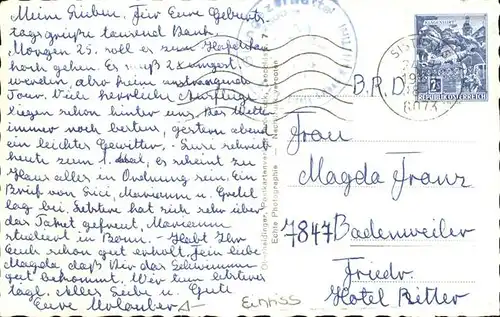 Meine Lieben. Für Eure Geburts-
tagsgrüße tausend Dank.
Morgen 25. soll es zum Hafelekar
hoch gehen. Es muß 2x
werden, also kein anstrengende
Tour. Viele herrliche Ausflüge
liegen schon hinter uns. Das Wetter
immer noch bestens, gestern abend
ein leichtes Gewitter. - Susi schreibt
heute zum 1. Mal, es scheint zu
Haus alles in Ordnung sein. Ein
Brief von Sici, Mariann u. Gretel
lag bei. Letztere hat sich sehr über
das Paket gefreut, Mariann
studiert in Bonn. - Habt Ihr
Euch schon gut erholt. Fein liebe
Magda daß Dir das Schwimmen
gut bekommt. Wir tun letzteres
tägl. Alles Liebe u. Gute
Eure Urlauber
Einriss
Echte Photographie
REPUBLIK ÖSTERREICH
6073
B.R.D.
Frau
Magda Franz
7847 Badenweiler
Friedr.
Hotel Ritter